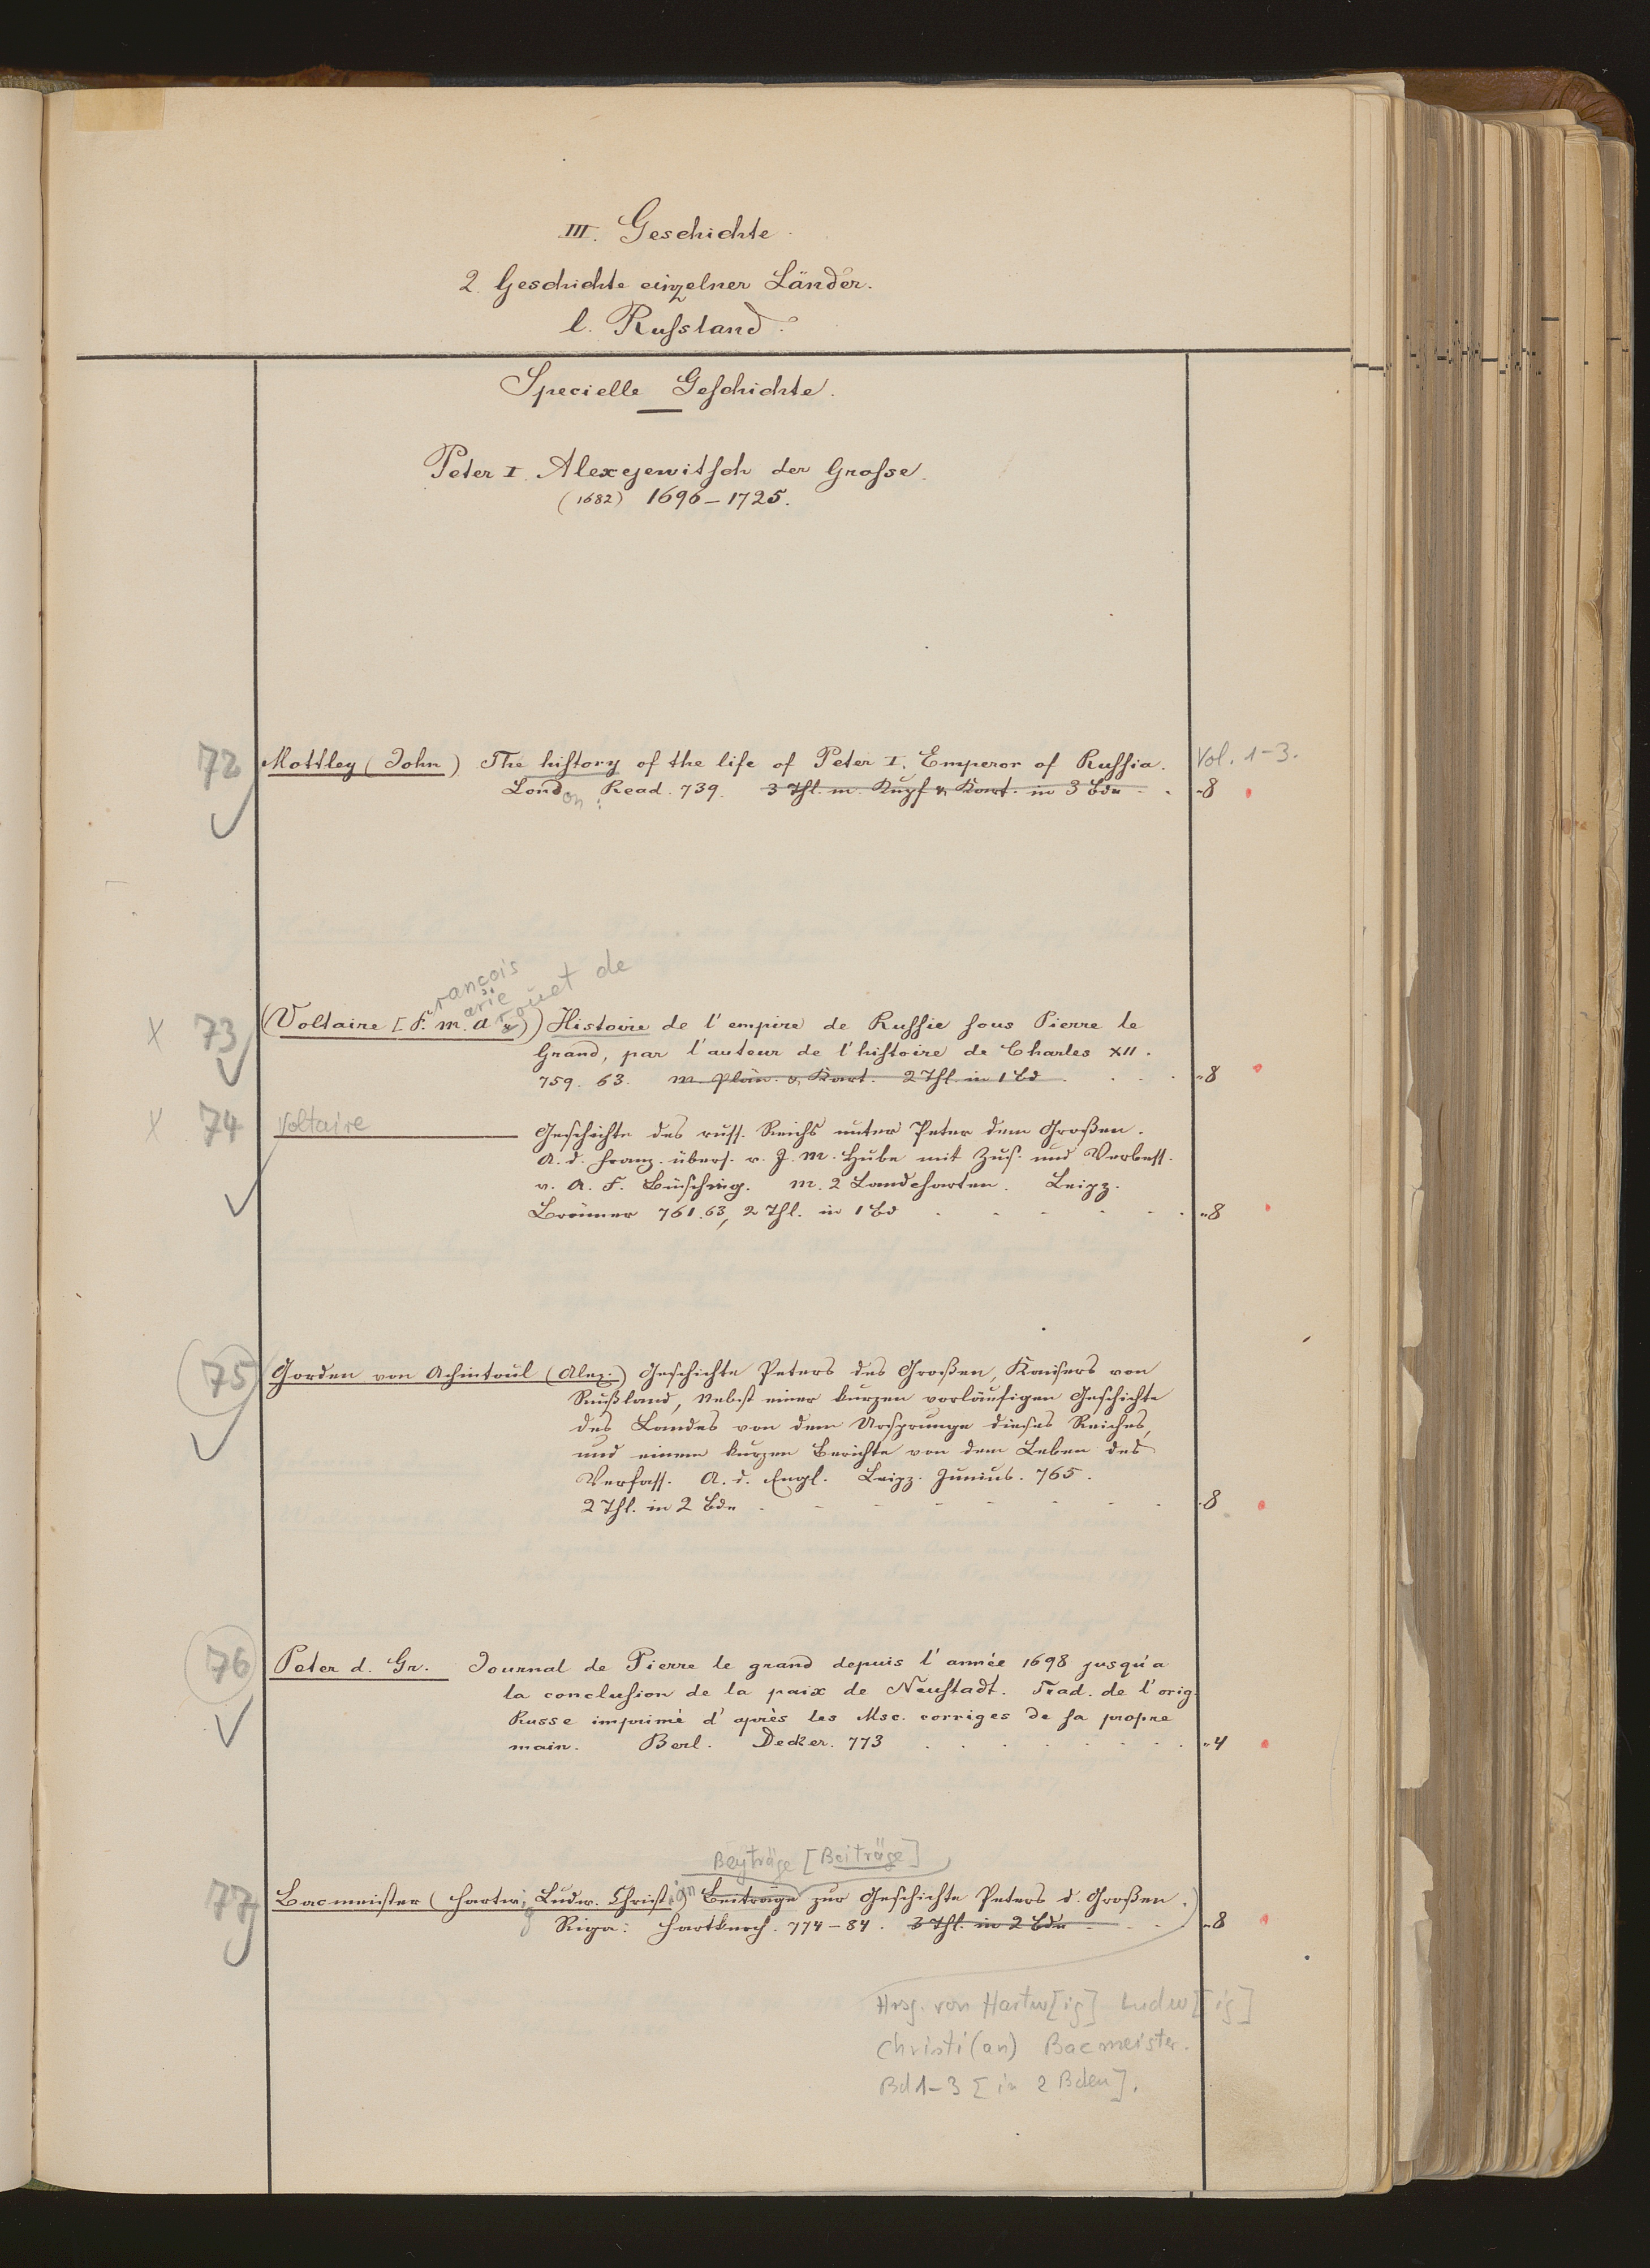 III. Geschichte.
2. Geschichte einzelner Länder.
l. Russland.
Specielle Geschichte.
Peter I. Alexejewitsch der Grosse.
(1682) 1696–1725.
72 Mottley (John) The history of the life of Peter I, Emperor of Russia. Vol. 1-3.
London: Read. 739. 3 Thl. m. Kupf. u. Kart. in 3 Bdn. "8
François Marie Arouet de
X 73 (Voltaire [F. M. A. v.]) Histoire de l'empire de Russie sous Pierre le
Grand, par l'auteur de l'histoire de Charles XII.
759. 63. m. Plän. u. Kart. 2 Thl. in 1 Bd. "8
X 74 Voltaire Geschichte des russ. Reichs unter Peter dem Großen.
A. d. Franz. übers. v. J. M. Hube mit Zus. und Verbess.
v. A. F. Büsching. M. 2 Landcharten. Leipz.
Brönner 761.63, 2 Thl. in 1 Bd "8
75 Gorden von Achintoul (Alex.) Geschichte Peters des Großen, Kaisers von
Rußland, Nebst einer kurzen vorläufigen Geschichte
des Landes von dem Ursprunge dieses Reiches,
und einem kurzen Berichte von dem Leben des
Verfass. A. d. Engl. Leipz. Junius. 765.
2 Thl. in 2 Bdn "8
76 Peter d. Gr. Journal de Pierre le grand depuis l'année 1698 jusqu'a
la conclusion de la paix de Neustadt. Trad. de l'orig.
Russe imprimé d'après les Msc. corriges de sa propre
main. Berl. Decker. 773 "4
Beyträge [Beiträge]
77 Bacmeister (Hartwig Ludw. Christian) Beiträge zur Geschichte Peters d. Großen.
Riga: Hartknoch. 774–84. 3 Thl. in 2 Bdn "8
Hrsg. von Hartw[ig] Ludw[ig]
Christi(an) Bacmeister.
Bd 1-3 [in 2 Bden].